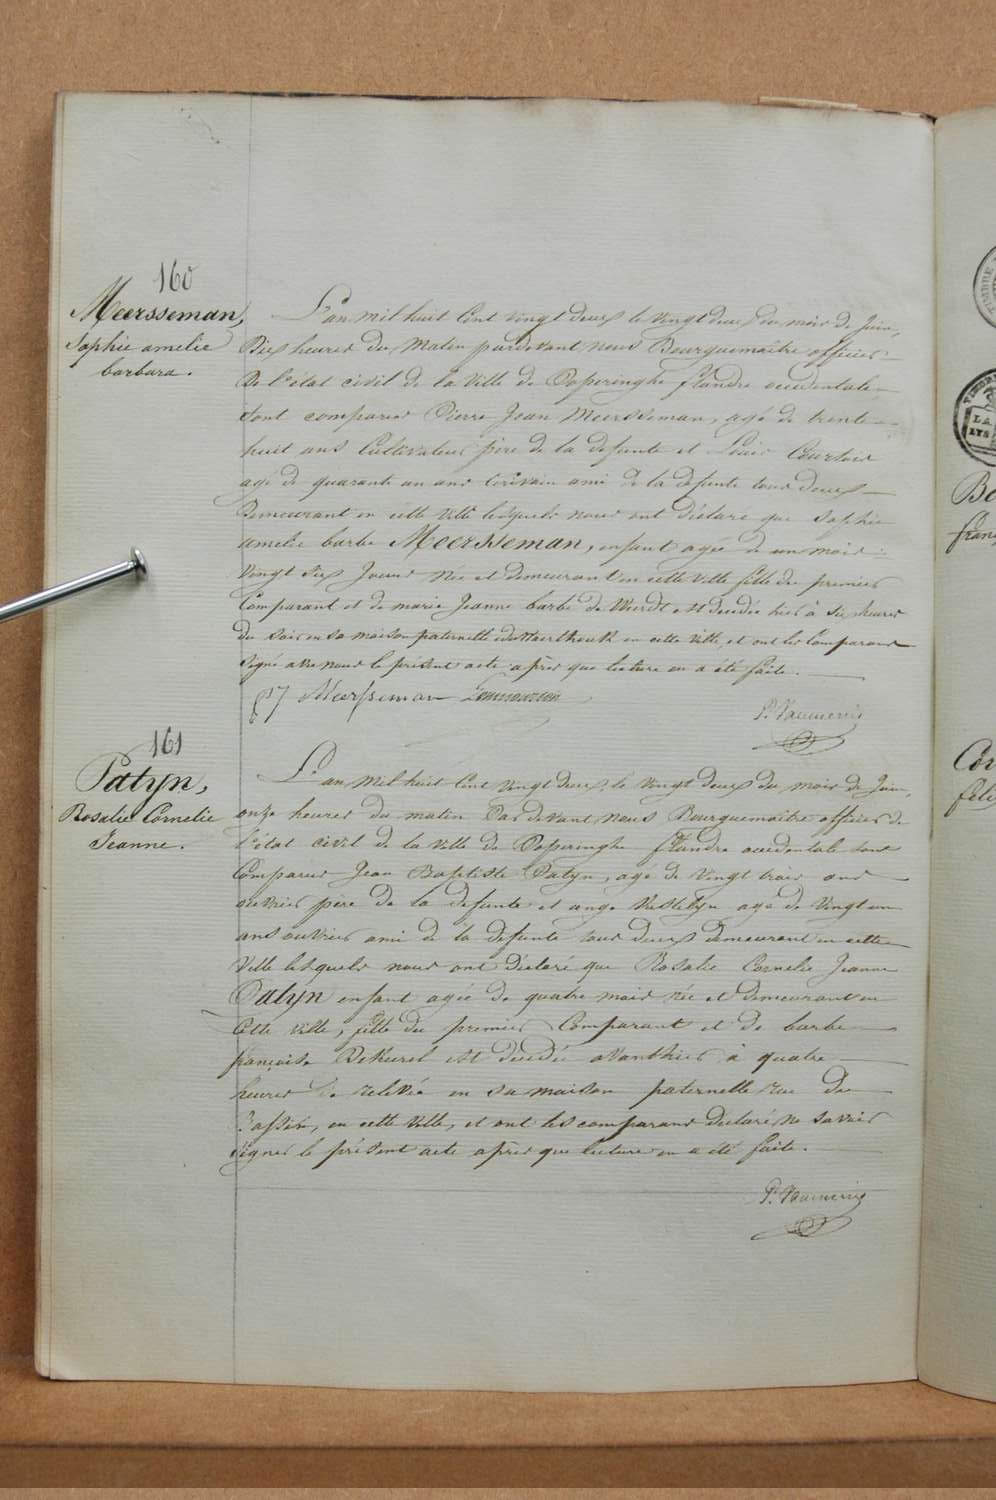 160
Meersseman,
Sophie amelie
barbara.
L'an mil huit Cent vingt deux le vingt deux du mois de Juin,
Dix heures du Matin pardevant nous Bourguemaître officier
De l'état civil de la Ville de Poperinghe flandre occidentale
Sont comparus Pierre Jean Meersseman, agé de trente
huit ans Cultivateur père de la defunte et Louis Courtois
agé de quarante un ans Ecrivain ami de la defunte tous deux
Demeurant en cette Ville lesquels nous ont Déclaré que Sophie
amelie barbe Meersseman, enfant agée de un mois
Vingt six Jours Née et demeurant en cette Ville fille du premier
Comparant et de marie Jeanne barbe de Weerdt est decedée hier à six heures
du Soir en sa maison paternelle en cette Ville, et ont les Comparans
Signé avec nous le présent acte après que lecture en a été faite.
p j Meersseman
P. Vanmerris
161
Patyn,
Rosalie Cornelie
Jeanne.
L'an mil huit Cent vingt deux, le vingt deux du mois de Juin,
onze heures du matin Par devant nous Bourguemaître officier de
l'état civil de la Ville de Poperinghe flandre occidentale sont
Comparus Jean Baptiste Patyn, agé de Vingt trois ans
ouvrier père de la defunte et ange agé de Vingt un
ans ouvrier ami de la defunte tous deux demeurant en cette
Ville lesquels nous ont Déclaré que Rosalie Cornelie Jeanne
Patyn enfant agée de quatre mois née et demeurant en
Cette Ville, fille du premier Comparant et de barbe
françoise est decedée avanthier à quatre
heures de relevée en sa maison paternelle rue de
en cette Ville, et ont les comparans declaré ne savoir
Signer le présent acte après que lecture en a été faite.
P. Vanmerris
Be
franç
Cor
feli